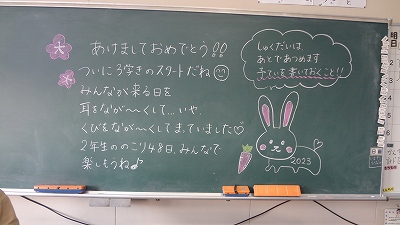 大
あけましておめでとう!!
ついに3学きのスタートだね
みんなが来る日を
耳をなが〜くして…いや、
くびをなが〜くしてまっていました♡
2年生ののこり48日、みんなで
楽しもうね♪
しゅくだいは
あとであつめます
予ていを書いておくこと!!
2023
明
日